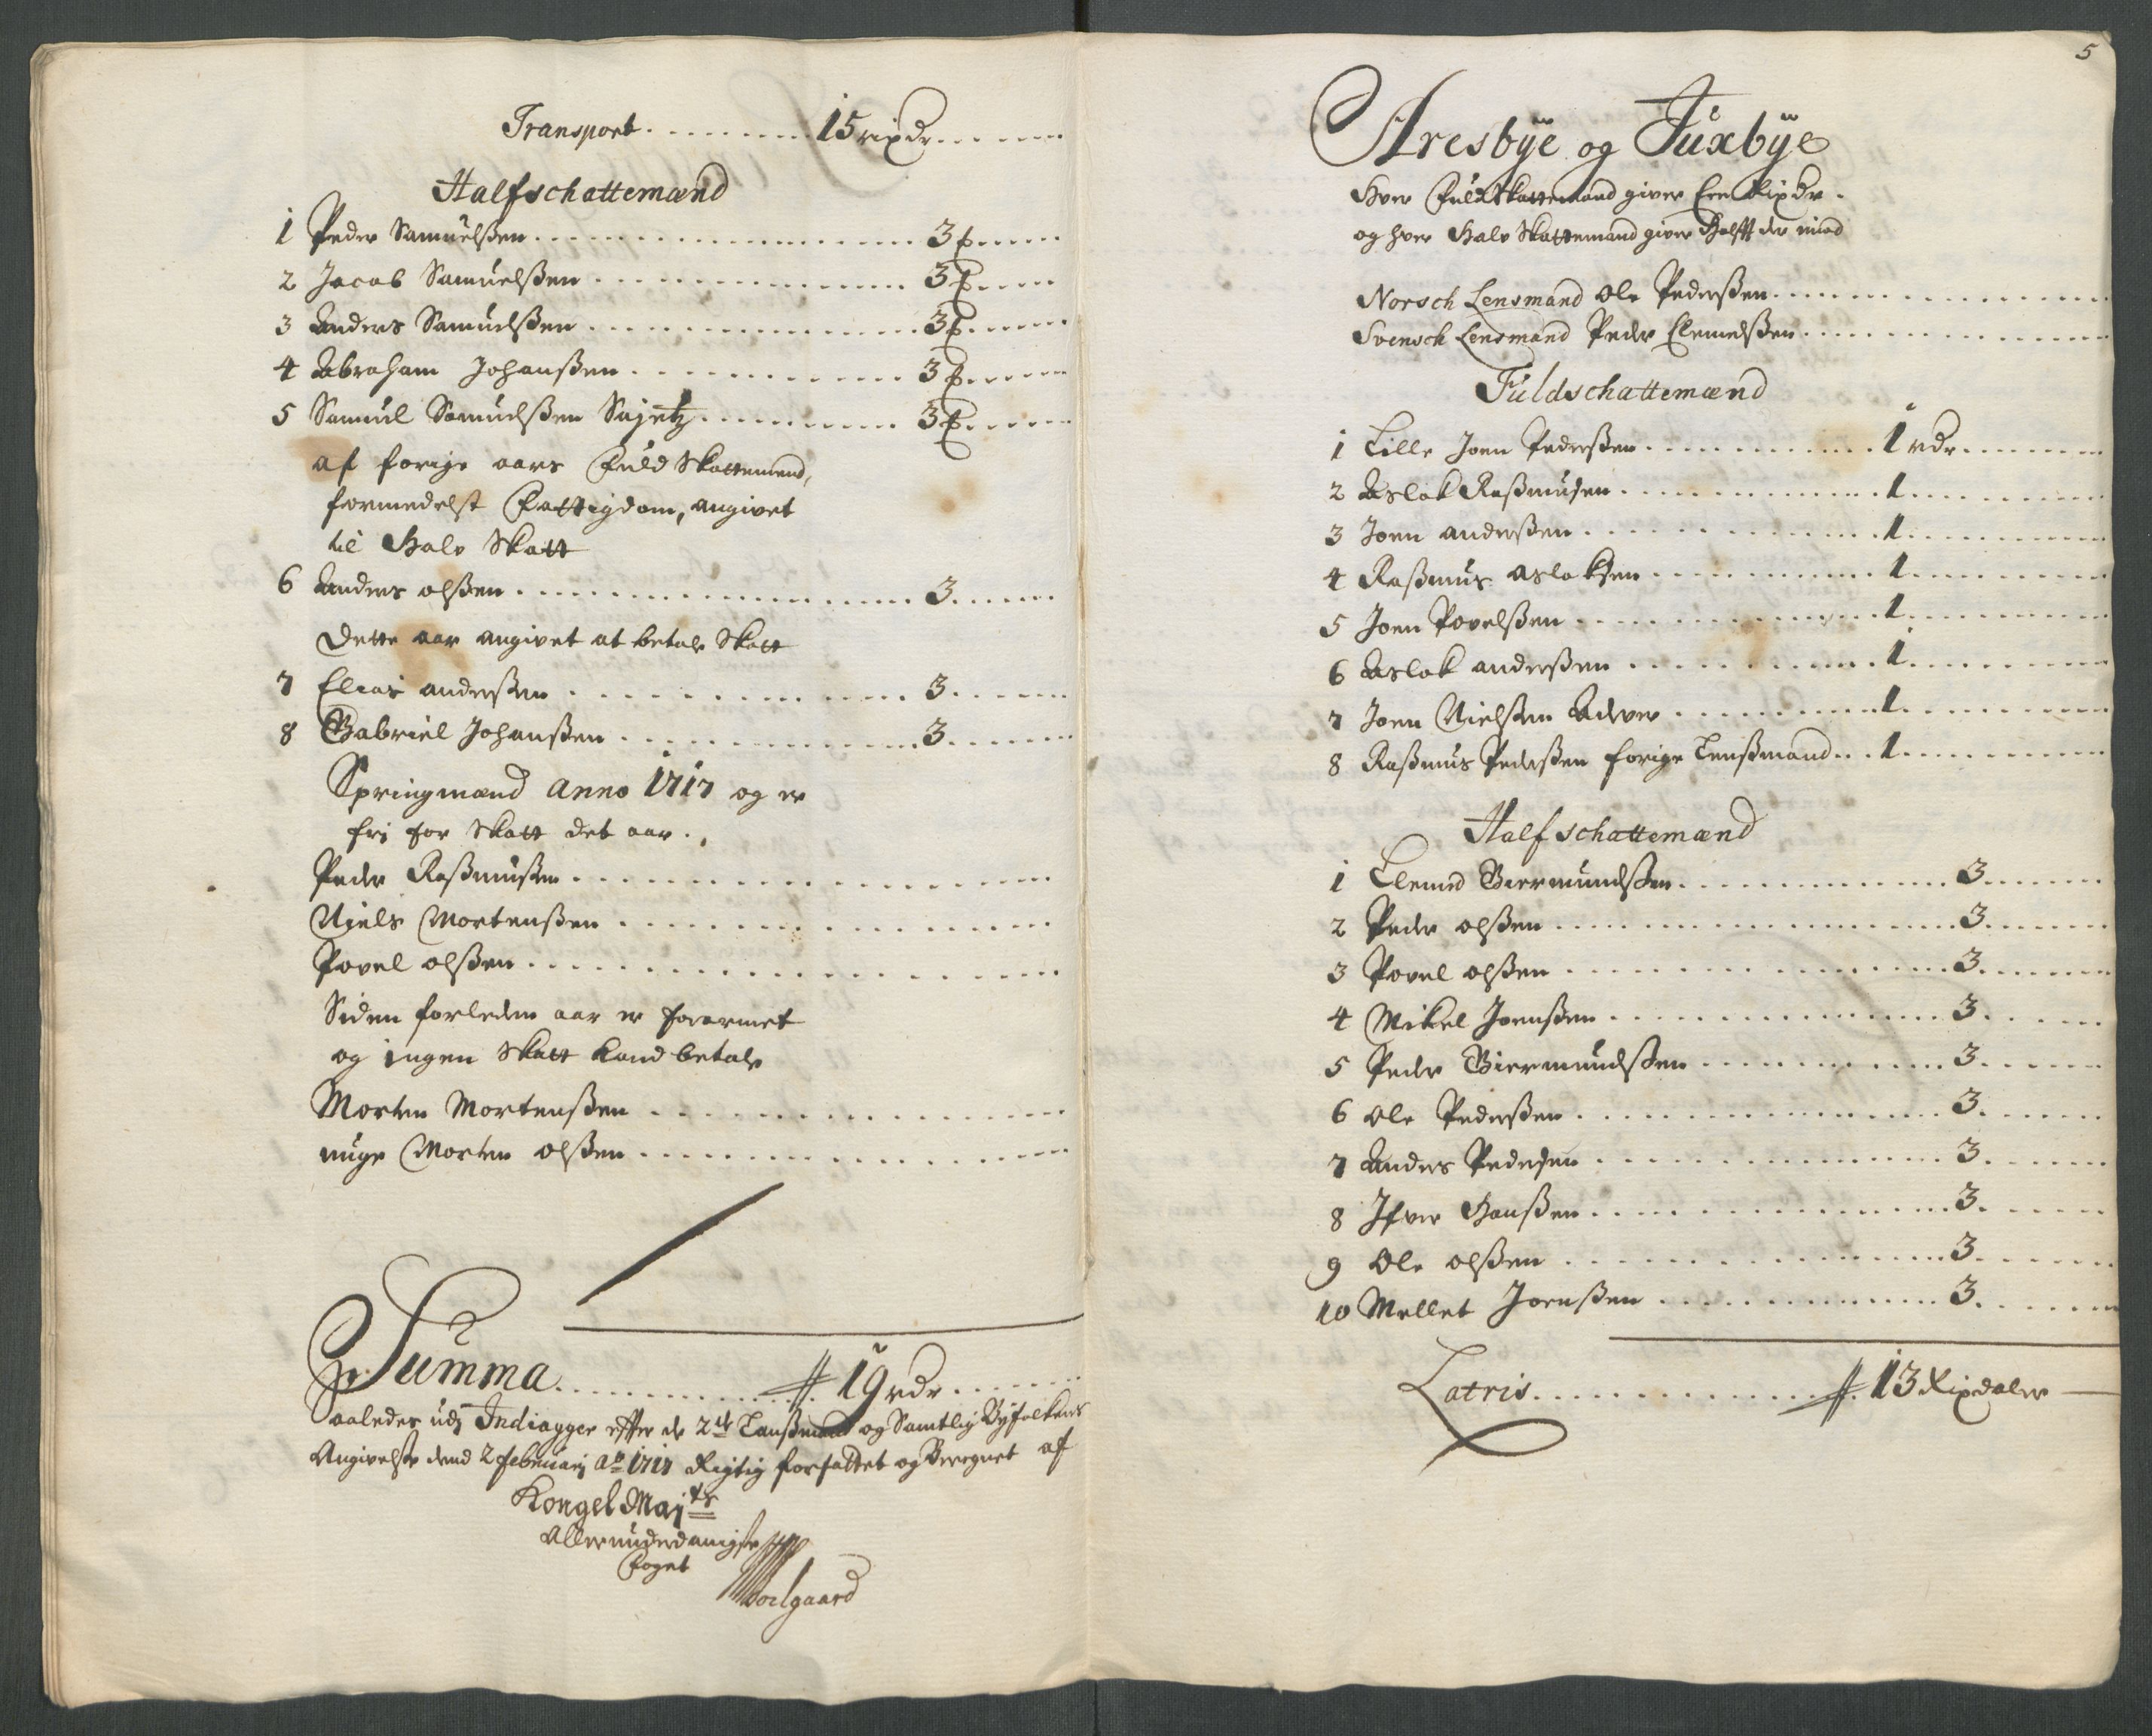 Transport . . . . . . . . 15 rixdr . . . . . .
Halfschattemænd
1 Peder Samuelßen . . . . . . . . 3 . . . .
2 Jacob Samuelßen . . . . . . . . 3 . . . .
3 Anders Samuelßen . . . . . . . . 3 . . . .
4 Abraham Johanßen . . . . . . . . 3 . . . .
5 Samuel Samuelßen Sujetz . . . . . . . . 3 . . . .
af forige aars Fuld Skattemend,
formedelst Fattigdom, angivet
til Halv Skatt
6 Anders olßen . . . . . . . . 3 . . . .
Dette aar angivet at betale Skatt
7 Elias anderßen . . . . . . . . 3 . . . .
8 Gabriel Johanßen . . . . . . . . 3 . . . .
Springmænd anno 1717 og er
fri for Skatt det aar.
Peder Raßmußen . . . . . . . .
Niels Mortenßen . . . . . . . .
Povel olßen . . . . . . . .
Siden forleden aar er forarmet
og ingen Skatt kand betale
Morten Mortenßen . . . . . . . .
unge Morten olßen . . . . . . . .
Summa . . . . . . . . 19 rdr . . . .
Saaledes udj Indiagger efter de 2de Lanßmænd og Samtlig Byfolkens
Angivelse dend 2 Februarij Ao 1717 Rigtig forfattet og Beregnet af
Kongel Mayts
Allerunderdanigste
Foget
Soelgaard
5
Aresbÿe og Juxbÿe
Hver Fuld Skattemand giver Een Rixdr.
og hver Halv Skattemand giver Helfft der imod
Norsch Lensmand Ole Pederßen . . . . . . . .
Svensch Lensmand Peder Clemedßen . . . . . . . .
Fuldschattemænd
1 Lille Joen Pederßen . . . . . . . . 1 rdr . . . .
2 Aslak Raßmusen . . . . . . . . 1 . . . .
3 Joen anderßen . . . . . . . . 1 . . . .
4 Raßmus Aslaksen . . . . . . . . 1 . . . .
5 Joen Povelßen . . . . . . . . 1 . . . .
6 Aslak anderßen . . . . . . . . 1 . . . .
7 Joen Nielßen . . . . . . . . 1 . . . .
8 Raßmus Pederßen forige Lenßmand . . . 1 . . . .
Half schattemænd
1 Clemed Biermundßen . . . . . . . . 3 . . . .
2 Peder olßen . . . . . . . . 3 . . . .
3 Povel olßen . . . . . . . . 3 . . . .
4 Mikel Joenßen . . . . . . . . 3 . . . .
5 Peder Biermundßen . . . . . . . . 3 . . . .
6 Ole Pederßen . . . . . . . . 3 . . . .
7 Anders Pedersen . . . . . . . . 3 . . . .
8 Ifver Hanßen . . . . . . . . 3 . . . .
9 Ole olßen . . . . . . . . 3 . . . .
10 Mellet Joenßen . . . . . . . . 3 . . . .
Latris . . . . . . . . 13 Rixdaler